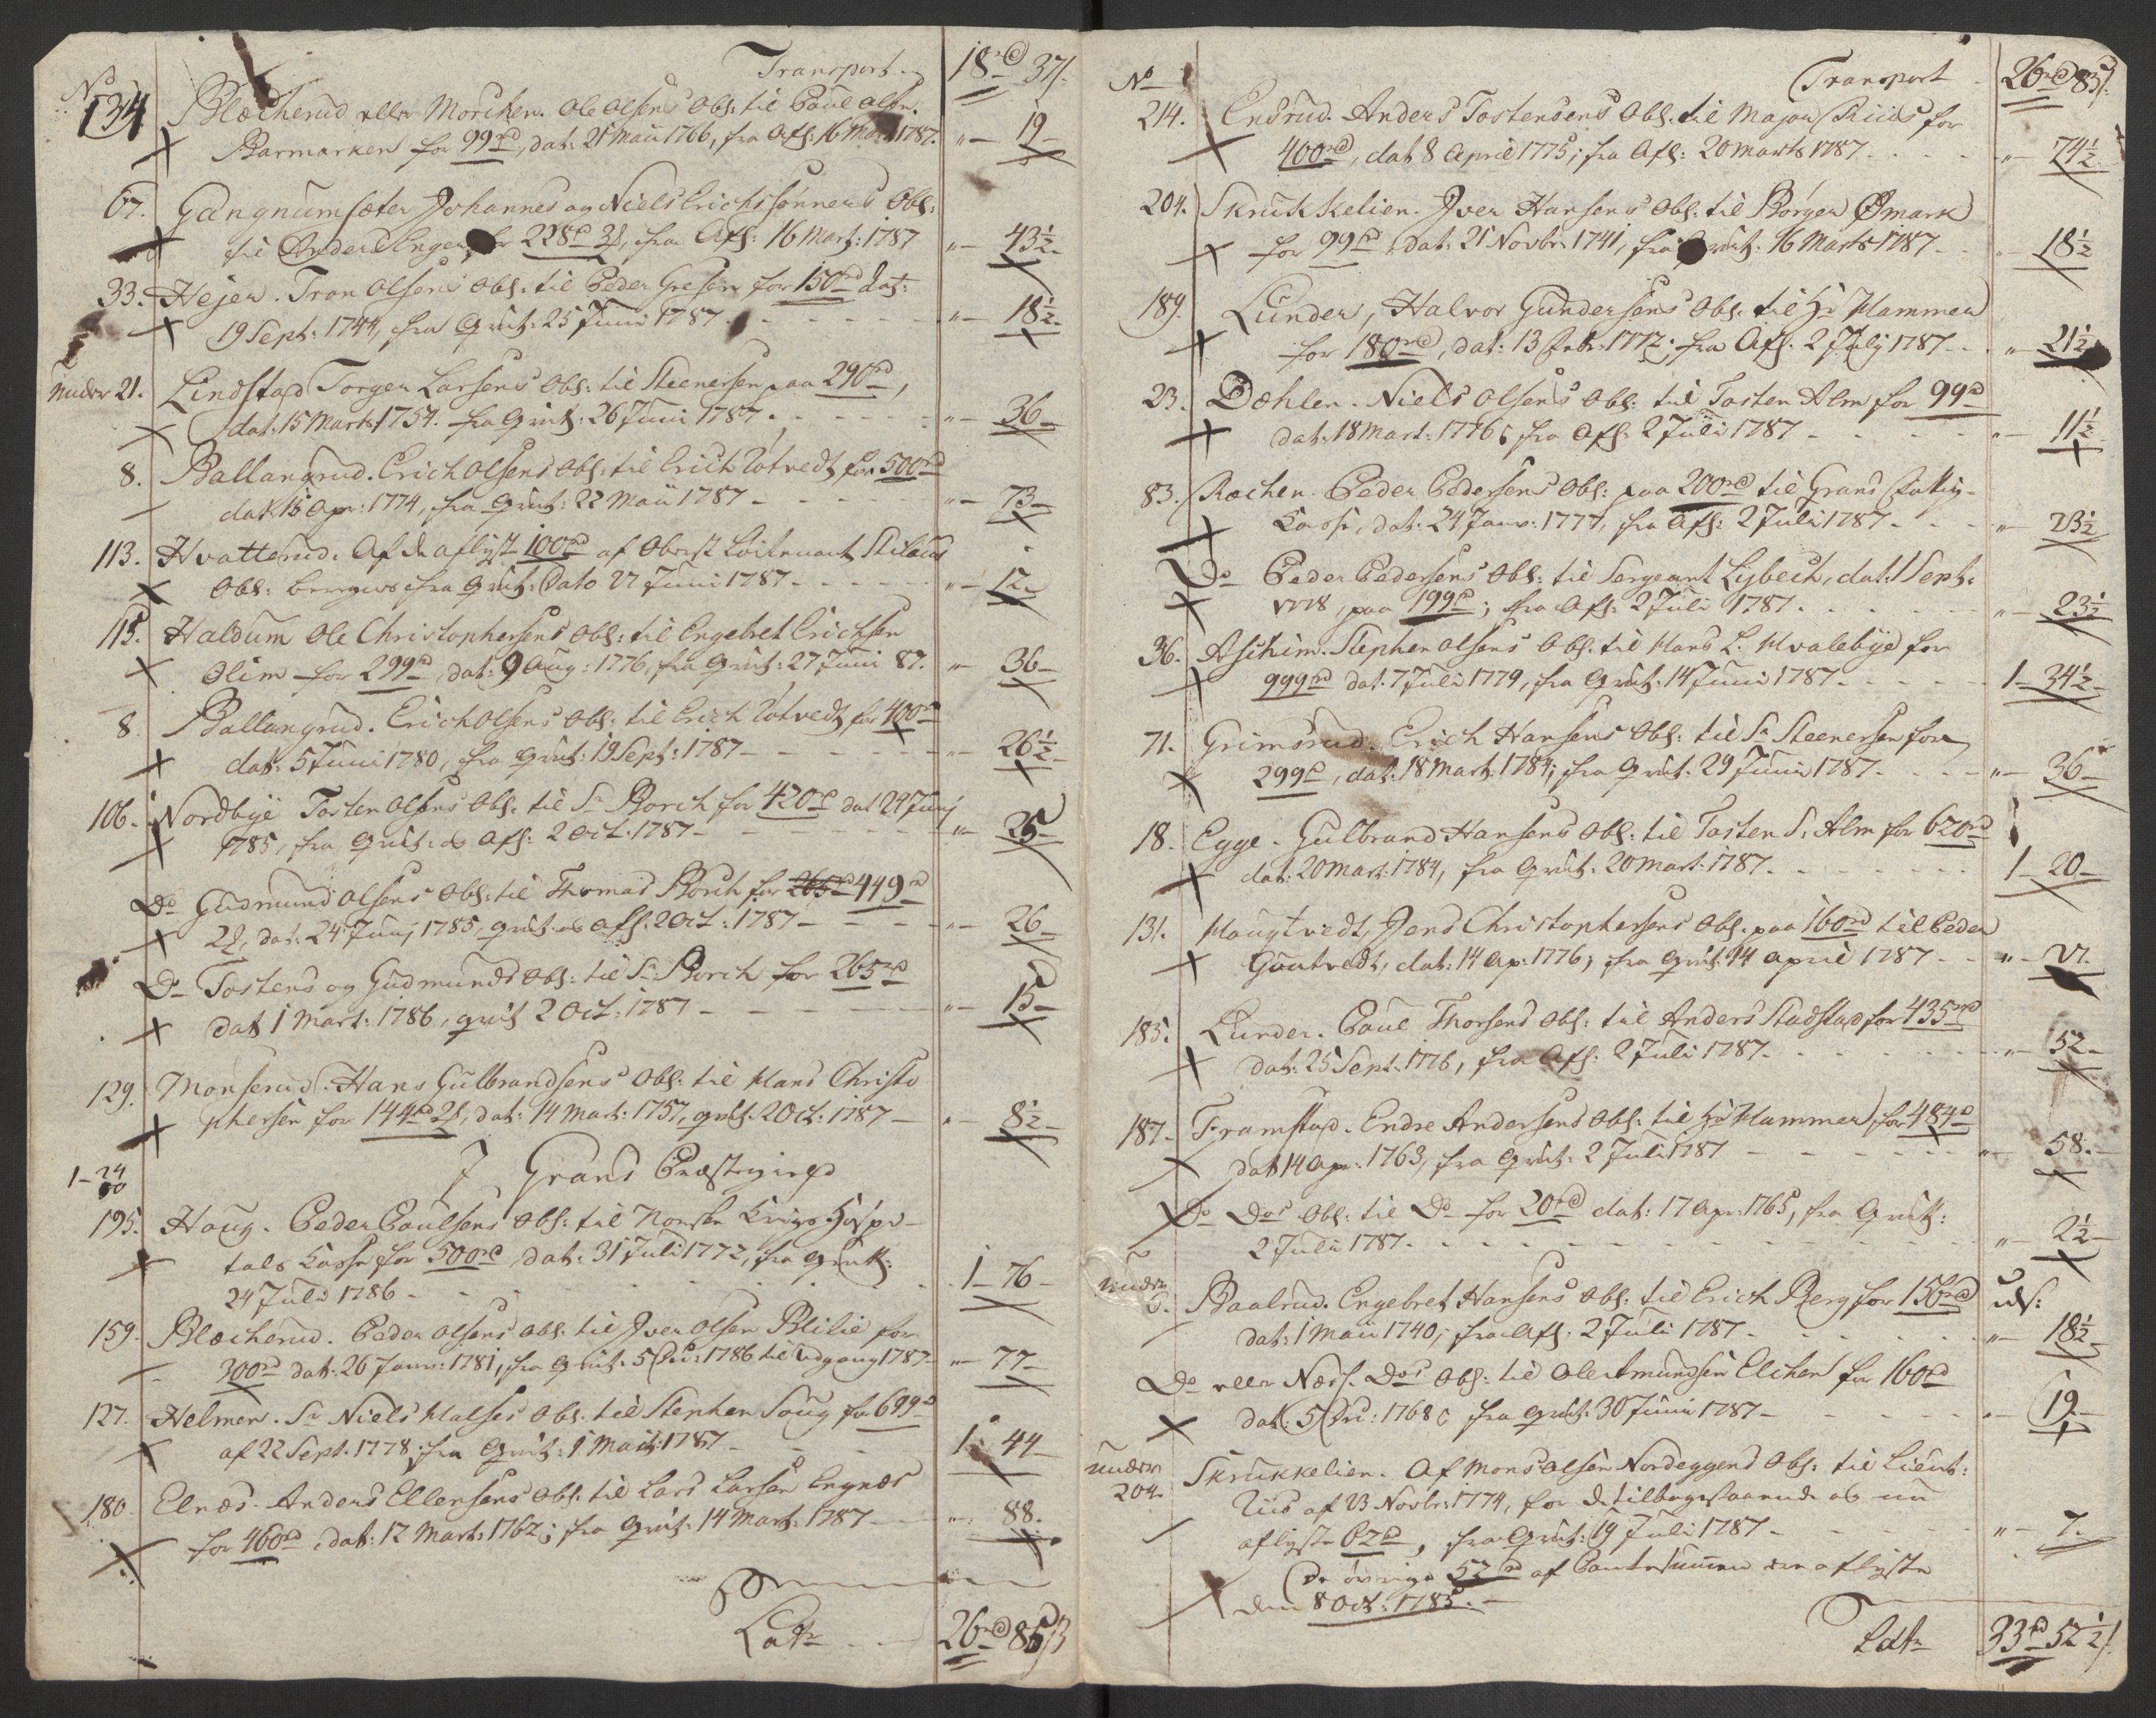 Transport. 18rd 37ß.
No
134 Blæcherud eller Morcken. Ole Olsens Obl: til Poul Olsen
Barmarken for 99rd, dat: 21 Maii 1766, fra Afl: 16 Mart 1787. „ — 19 —
67. Gangnumsæter Johannes og Niels Erichssønners Obl:
til Anders Enger for 228rd 2ß, fra Afl: 16 Mart: 1787 „ — 43½ —
33. Hejer. Tron Olsens Obl: til Peder Gresen for 150rd dat:
19 Sept: 1744, fra Qvit: 25 Junii 1787 - - - „ — 18½ —
under 21. Lindstad Torger Larsens Obl: til Steenersen paa 290rd,
dat. 15 Marts 1754. fra Qvit: 26 Junii 1787. - - - „ — 36 —
8. Ballangrud. Erich Olsens Obl: til Erich Totvedt for 500rd
dat: 15 Apr: 1774, fra Qvit: 22 Maii 1787 - - - „ — 73 —
113. Hvatterud. Af de aflyst 100rd af Oberst Loitenant Stilaus
Obl: beregnes fra Qvit: Dato 27 Junii 1787 - - - „ — 12 —
115. Haldum Ole Christophersens Obl: til Engebret Erichsen
Olim for 299rd, dat: 9 Aug: 1776, fra Qvit: 27 Junii 87. „ — 36 —
8. Ballangrud. Erich Olsens Obl: til Erich Totvedt for 400rd
dat: 5 Junii 1780, fra Qvit: 19 Sept: 1787 - - - „ — 26½ —
106. Nordbye Tosten Olsens Obl: til Sr Borch for 420rd dat 24 Junj
1785, fra Qvit: og Afl: 2 Oct. 1787 - - - „ — 25 —
Do Gudmund Olsens Obl: til Thomas Borch for 265rd 449rd
2ß, dat: 24 Junj 1785, qvit: og Afl: 2 Oct: 1787 - - - „ — 26 —
Do Tostens og Gudmunds Obl: til Sr Borch for 265rd
dat 1 Mart: 1786, qvit 2 Oct: 1787 - - - „ — 15 —
129. Monserud. Hans Gulbrandsens Obl: til Hans Christo
phersen for 144rd 2ß, dat: 14 Mart: 1757, qvit. 2 Oct: 1787 — „ — 8½ —
J Grans Præstegield
1 – 24
195. Haug. Peder Poulsens Obl: til Norske Krigs Hospi-
tals Casse for 500rd dat: 31 Juli 1772, fra Qvitt:
24 Juli 1786 - - - 1 — 76 —
159. Blæcherud. Peder Olsens Obl: til Jver Olsen Blilie for
300rd dat: 26 Janv: 1781, fra Qvit. 5 Dec: 1786 til Udgang 1787. „ — 77 —
127. Helmen. Sr Niels Halses Obl: til Stephen Soug for 699rd
af 22 Sept. 1778, fra Qvit: 1 Maii: 1787 - - - 1 — 44 —
180. Elnæs. Anders Ellensens Obl: til Lars Larsen Engnæs
for 460rd, dat: 12 Mart: 1762; fra Qvit: 14 Mart: 1787 — „ — 88. —
Latr - - 26rd 85ß
No Transport 26rd 85ß.
214. Endrud. Anders Tostensens Obl: til Major Riiis for
400rd, dat 8 April 1775; fra Afl: 20 Marts 1787 - - - „ — 74½
204. Skrukkelien. Jver Hansens Obl: til Børger Ømark
for 99rd, dat: 21 Novbr: 1741, fra Qvit. 16 Marts 1787 - - „ — 18½
189. Lunder, Halvor Gundersens Obl: til Hr Hammer
for 180rd, dat: 13 Febr: 1772; fra Afl. 2 Julj 1787 - - „ — 21½
23. Dæhlen. Niels Olsens Obl: til Tosten Alm for 99rd
dat: 18 Mart: 1776; fra Afl: 2 Juli 1787 - - - „ — 11½
83. Ræchen. Peder Pedersens Obl: paa 200rd til Grans Fattig-
Casse, dat: 24 Janv: 1777, fra Afl: 2 Juli 1787 - - - „ — 23½
Do Peder Pedersens Obl: til Sergeant Lybech, dat: 1 Sept:
1778, paa 199rd; fra Afl: 2 Juli 1787. - - - „ — 23½
36. Aschim. Stephen Olsens Obl: til Hans L. Hvalebye for
999rd dat. 7 Juli 1779, fra Qvit: 14 Junii 1787 - - - 1 — 34½
71. Grimsrud. Erich Hansens Obl: til Sr Steenersen for
299rd, dat: 18 Mart. 1784; fra Qvit: 29 Junii 1787. - - - „ — 36 —
18. Egge. Gulbrand Hansens Obl: til Tosten S. Alm for 620rd
dat: 20 Mart: 1784, fra Qvit. 20 Mart: 1787. - - - 1 — 20 —
131. Haugtvedt, Jens Christophersens Obl: paa 160rd til Peder
Gaatvedt, dat: 14 Ap: 1776; fra Qvit 14 April 1787 - - „ — 27.
185. Lunder. Poul Thorsens Obl: til Anders Stadstad for 435rd
dat: 25 Sept. 1776, fra Afl: 2 Juli 1787. - - - „ — 52 —
187. Framstad. Endre Andersens Obl: til Hr Hammer for 484rd
dat 14 Apr: 1763, fra Qvit: 2 Juli 1787 - - - „ — 58. —
Do Dos Obl: til Do for 20rd dat: 17 Apr: 1765, fra Qvitt:
2 Juli 1787. - - - „ — 2½ —
under 6. Baalrud. Engebret Hansens Obl: til Erich Berg for 156rd
dat: 1 Maii 1740; fra Afl: 2 Juli 1787. - - - „ — 18½
Do eller Næss. Dos Obl: til Ole Amundsen Elchen for 160rd
dat: 5 Dec: 1768; fra Qvit: 30 Junii 1787 - - - „ — 19. —
under 204. Skrukkelien. Af Mons Olsen Nordeggens Obl: til Lieut:
Riis af 23 Novbr: 1774, for de tilbagestaaende og nu
aflyste 62rd, fra Qvit: 19 Juli 1787 - - - „ — 7. —
De øvrige 52rd af Pantesummen ere aflyste
den 8 Oct: 1785. —
Latr 33rd 52½ß.